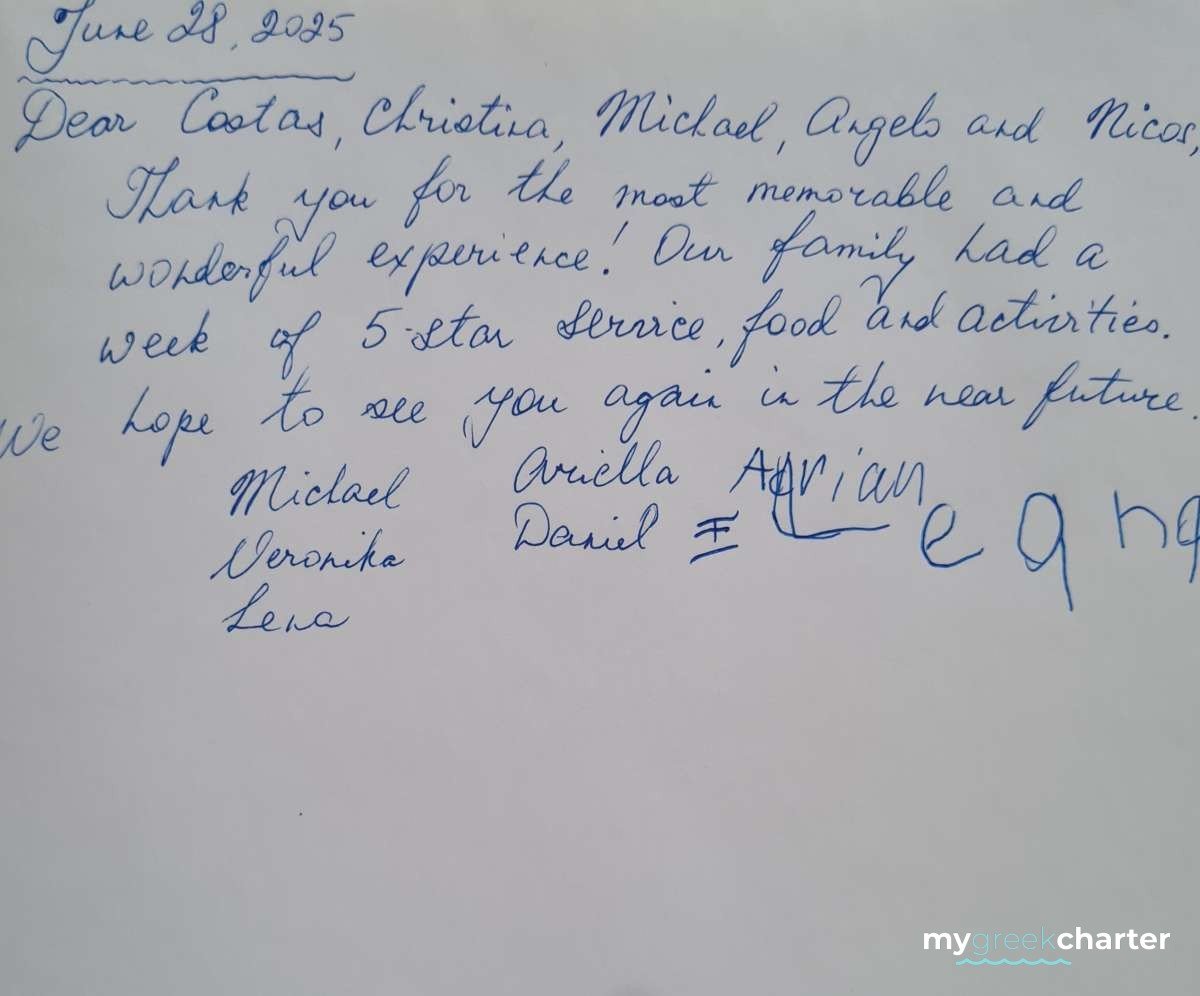 June 28, 2025
Dear Costas, Christina, Michael, Angelo and Nicos,
Thank you for the most memorable and
wonderful experience! Our family had a
week of 5-star service, food and activities.
We hope to see you again in the near future.
Michael Ariella Adrian
Veronika Daniel
Lena
mygreekcharter